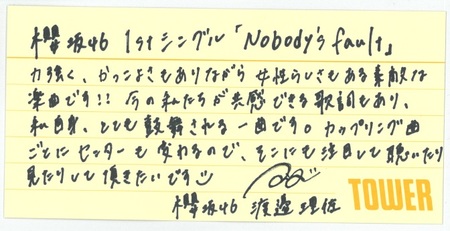 櫻坂46 1stシングル「Nobody's fault」
力強く、かっこよさもありながら女性らしさもある素敵な
楽曲です!! 今の私たちが共感できる歌詞もあり、
私自身、とても鼓舞される一曲です。カップリング曲
ごとにセンターも変わるので、そこにも注目して聴いたり
見たりして頂きたいです
櫻坂46 渡邉理佐
TOWER